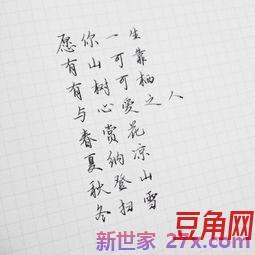 愿你一生
有山可靠
有树可栖
与心爱之人
春赏花
夏纳凉
秋登山
冬扫雪
豆角网
新世家 27x.com